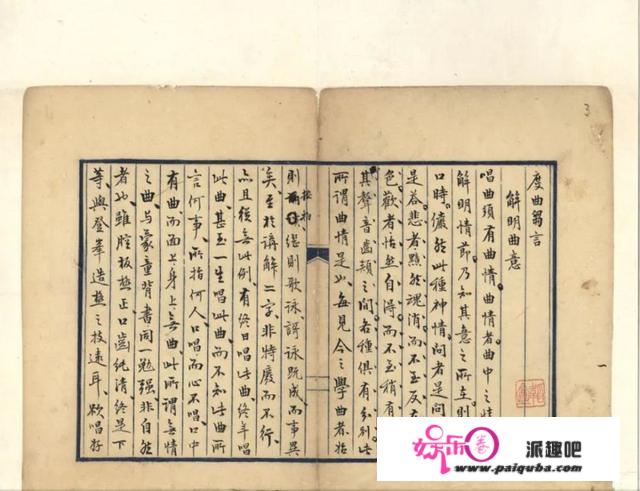 度曲芻言
解明曲意
唱曲須有曲情曲情者曲中之
解明情節乃知其意之所在則
口時儼然此種神情問者是問
是荅悲者黯然魂消而不至反
色歡者怡然自得而不至稍有
其聲音齒頰之間各種俱有分別此
所謂曲情是也每見今之學曲者始
則按拍繼則歌詠謌詠既成而事畢
矣至於講解二字非特廢而不行
亦且從無此例有終日唱此曲終年唱
此曲甚至一生唱此曲而不知此曲所
言何事所指何人口唱而心不唱口中
有曲而面上身上無曲此所謂無情
之曲與蒙童背書同一勉强非自然
者也雖腔板極正口齒純清終是下
等與登峯造極之技遠耳欲唱好
3
娱乐圈 派趣吧
www.paiquba.com